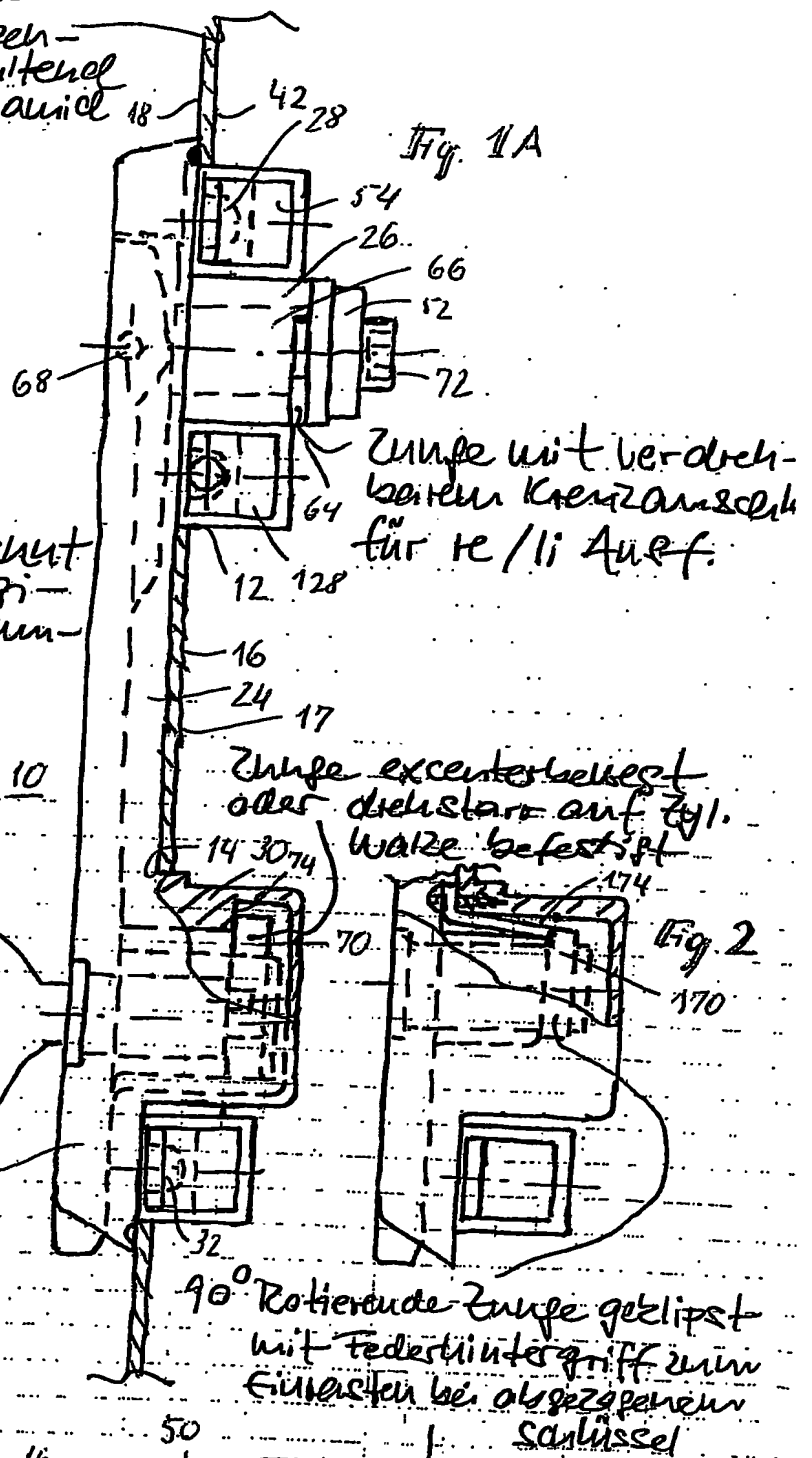 18
42
28
Fig. 1A
54
26
66
52
68
72
Zunge mit verdreh-
barem
64
für re/li Ausf.
12
128
16
24
17
10
Zunge excenterbewegt
oder drehstarr auf Zyl.
Walze befestigt
14 30 74
174
70
Fig. 2
170
32
90° Rotierende Zunge geklipst
mit Federhintergriff zum
Einrasten bei abgezogenem
Schlüssel
50